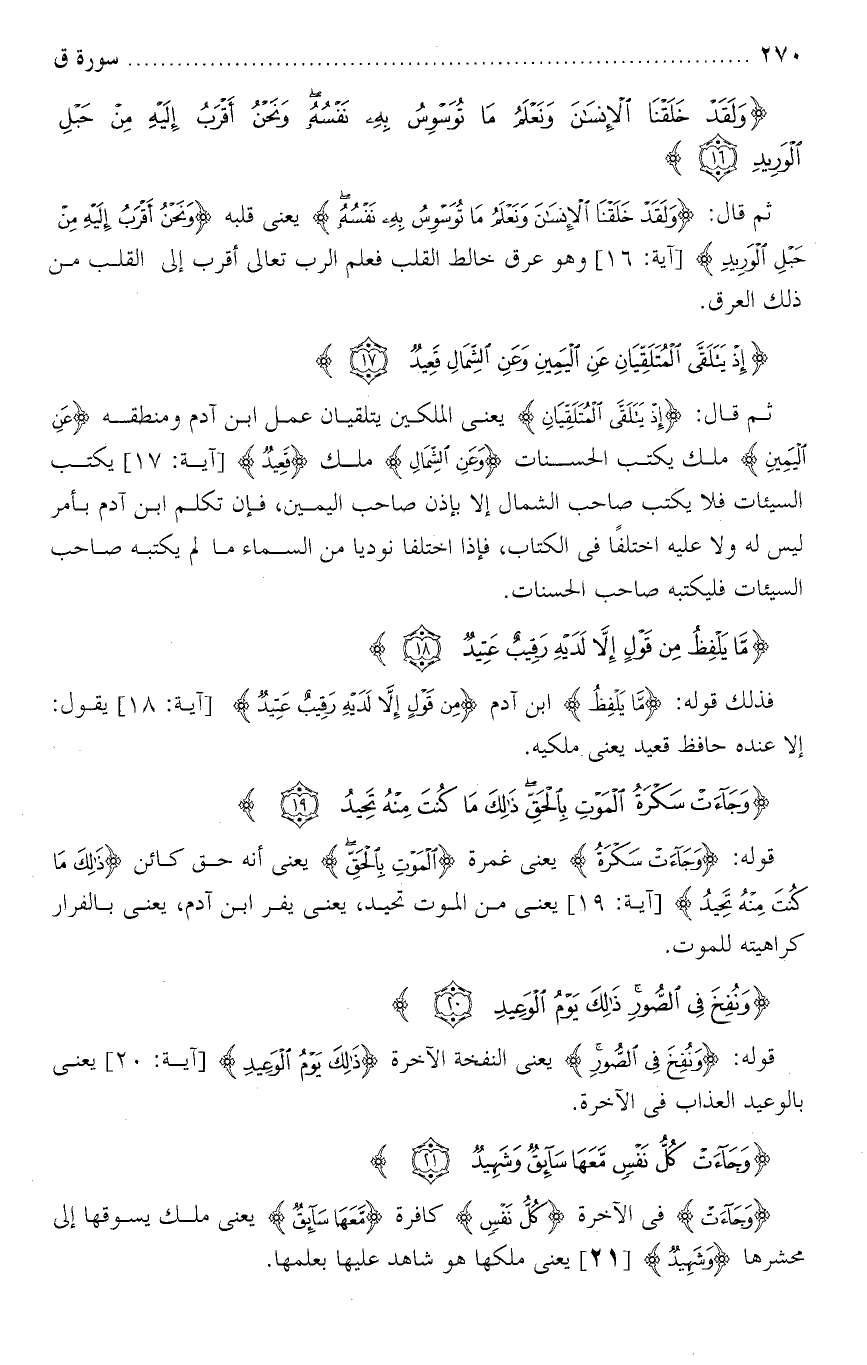 ٢٧٠ ........................................ سورة ق
﴿وَلَقَدْ خَلَقْنَا ٱلْإِنسَٰنَ وَنَعْلَمُ مَا تُوَسْوِسُ بِهِۦ نَفْسُهُۥۖ وَنَحْنُ أَقْرَبُ إِلَيْهِ مِنْ حَبْلِ
ٱلْوَرِيدِ ١٦﴾
ثم قال: ﴿وَلَقَدْ خَلَقْنَا ٱلْإِنسَٰنَ وَنَعْلَمُ مَا تُوَسْوِسُ بِهِۦ نَفْسُهُۥۖ﴾ يعنى قلبه ﴿وَنَحْنُ أَقْرَبُ إِلَيْهِ مِنْ
حَبْلِ ٱلْوَرِيدِ﴾ [آية: ١٦] وهو عرق خالط القلب فعلم الرب تعالى أقرب إلى القلب من
ذلك العرق.
﴿إِذْ يَتَلَقَّى ٱلْمُتَلَقِّيَانِ عَنِ ٱلْيَمِينِ وَعَنِ ٱلشِّمَالِ قَعِيدٌ ١٧﴾
ثم قال: ﴿إِذْ يَتَلَقَّى ٱلْمُتَلَقِّيَانِ﴾ يعنى الملكين يتلقيان عمل ابن آدم ومنطقه ﴿عَنِ
ٱلْيَمِينِ﴾ ملك يكتب الحسنات ﴿وَعَنِ ٱلشِّمَالِ﴾ ملك ﴿قَعِيدٌ﴾ [آية: ١٧] يكتب
السيئات فلا يكتب صاحب الشمال إلا بإذن صاحب اليمين، فإن تكلم ابن آدم بأمر
ليس له ولا عليه اختلفا فى الكتاب، فإذا اختلفا نوديا من السماء ما لم يكتبه صاحب
السيئات فليكتبه صاحب الحسنات.
﴿مَّا يَلْفِظُ مِن قَوْلٍ إِلَّا لَدَيْهِ رَقِيبٌ عَتِيدٌ ١٨﴾
فذلك قوله: ﴿مَّا يَلْفِظُ﴾ ابن آدم ﴿مِن قَوْلٍ إِلَّا لَدَيْهِ رَقِيبٌ عَتِيدٌ﴾ [آية: ١٨] يقول:
إلا عنده حافظ قعيد يعنى ملكيه.
﴿وَجَآءَتْ سَكْرَةُ ٱلْمَوْتِ بِٱلْحَقِّۖ ذَٰلِكَ مَا كُنتَ مِنْهُ تَحِيدُ ١٩﴾
قوله: ﴿وَجَآءَتْ سَكْرَةُ﴾ يعنى غمرة ﴿ٱلْمَوْتِ بِٱلْحَقِّۖ﴾ يعنى أنه حق كائن ﴿ذَٰلِكَ مَا
كُنتَ مِنْهُ تَحِيدُ﴾ [آية: ١٩] يعنى من الموت تحيد، يعنى يفر ابن آدم، يعنى بالفرار
كراهيته للموت.
﴿وَنُفِخَ فِى ٱلصُّورِۚ ذَٰلِكَ يَوْمُ ٱلْوَعِيدِ ٢٠﴾
قوله: ﴿وَنُفِخَ فِى ٱلصُّورِۚ﴾ يعنى النفخة الآخرة ﴿ذَٰلِكَ يَوْمُ ٱلْوَعِيدِ﴾ [آية: ٢٠] يعنى
بالوعيد العذاب فى الآخرة.
﴿وَجَآءَتْ كُلُّ نَفْسٍ مَّعَهَا سَآئِقٌ وَشَهِيدٌ ٢١﴾
﴿وَجَآءَتْ﴾ فى الآخرة ﴿كُلُّ نَفْسٍ﴾ كافرة ﴿مَّعَهَا سَآئِقٌ﴾ يعنى ملك يسوقها إلى
محشرها ﴿وَشَهِيدٌ﴾ [٢١] يعنى ملكها هو شاهد عليها بعلمها.